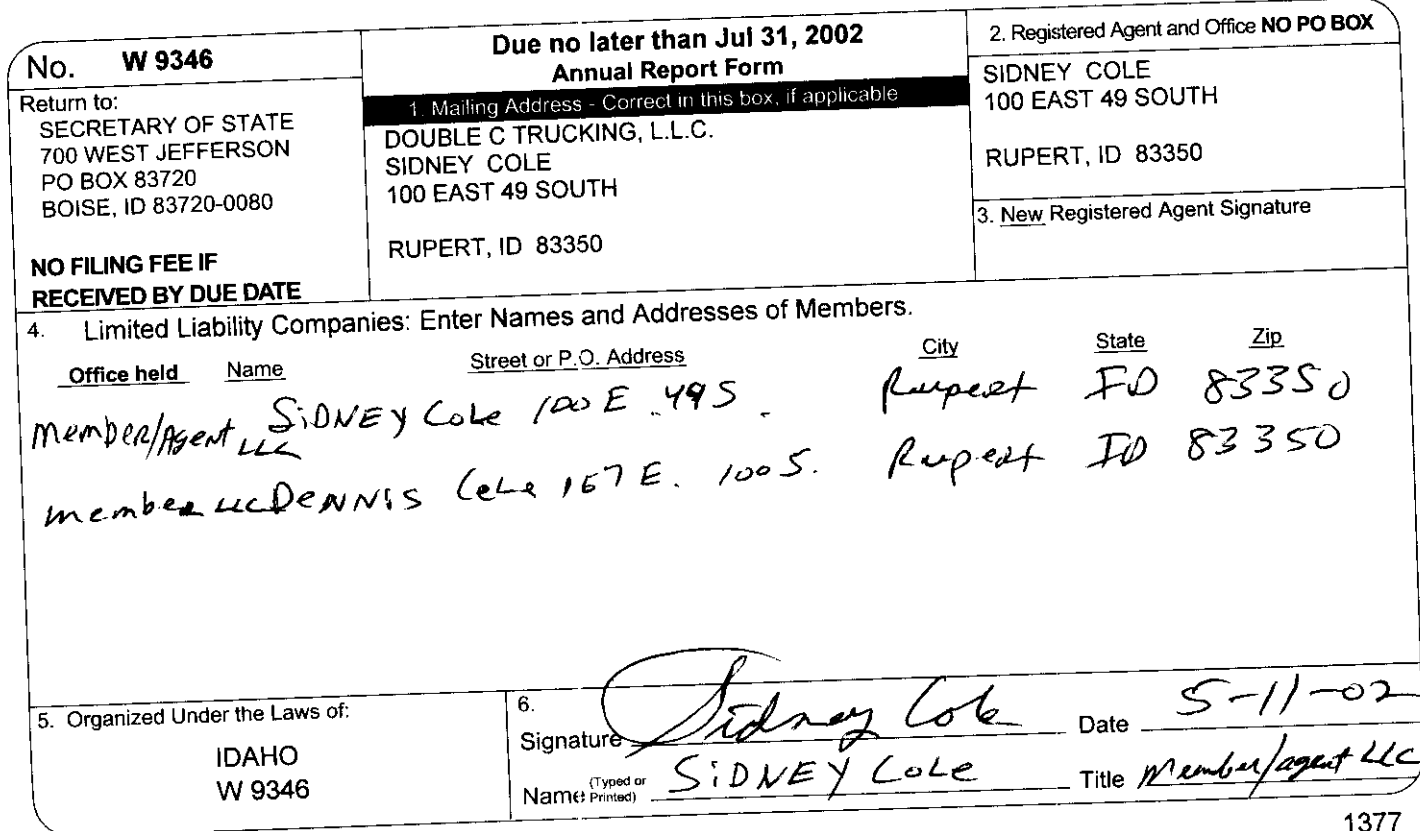 No. W 9346
Return to:
SECRETARY OF STATE
700 WEST JEFFERSON
PO BOX 83720
BOISE, ID 83720-0080
NO FILING FEE IF
RECEIVED BY DUE DATE
Due no later than Jul 31, 2002
Annual Report Form
1. Mailing Address - Correct in this box, if applicable
DOUBLE C TRUCKING, L.L.C.
SIDNEY COLE
100 EAST 49 SOUTH
RUPERT, ID 83350
2. Registered Agent and Office NO PO BOX
SIDNEY COLE
100 EAST 49 SOUTH
RUPERT, ID 83350
3. New Registered Agent Signature
4. Limited Liability Companies: Enter Names and Addresses of Members.
Office held Name Street or P.O. Address City State Zip
Member/Agent LLC SiDNEY Cole 100 E. 49 S. Rupert ID 83350
member LLC DeNNiS Cole 167 E. 100 S. Rupert ID 83350
5. Organized Under the Laws of:
IDAHO
W 9346
6.
Signature Sidney Cole Date 5-11-02
Name (Typed or Printed) SiDNEY Cole Title Member/agent LLC
1377